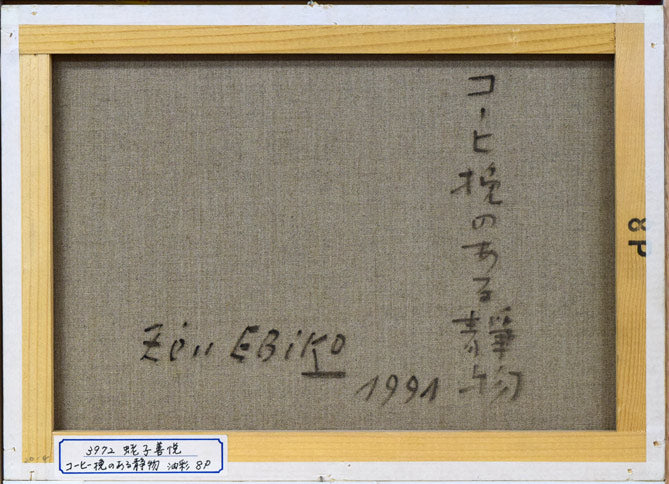 コーヒ挽のある静物
Zén EBiKO
1991
8P
3972 蛯子善悦
コーヒー挽のある静物 油彩 8P